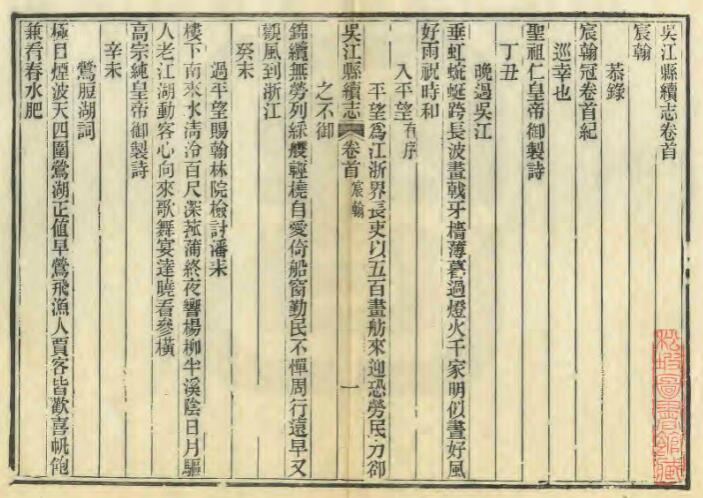 吳江縣續志卷首
宸翰
恭錄
宸翰冠卷首紀
巡幸也
聖祖仁皇帝御製詩
丁丑
晚過吳江
垂虹蜿蜒跨長波畫戟牙檣薄暮過燈火千家明似晝好風
好雨祝時和
入平望有序
平望爲江浙界長吏以五百畫舫來迎恐勞民力卻
吳江縣續志 卷首 宸翰 一
之不御
錦纜無勞列綵艭輕橈自愛倚船窗勤民不憚周行遠早又
觀風到浙江
癸未
過平望賜翰林院檢討潘耒
樓下南來水清泠百尺深菰蒲終夜響楊柳半溪陰日月驅
人老江湖動客心向來歌舞宴達曉看參橫
高宗純皇帝御製詩
辛未
鶯脰湖詞
極目煙波天四圍鶯湖正値早鶯飛漁人賈客皆歡喜帆飽
兼看春水肥
松坡圖書館藏